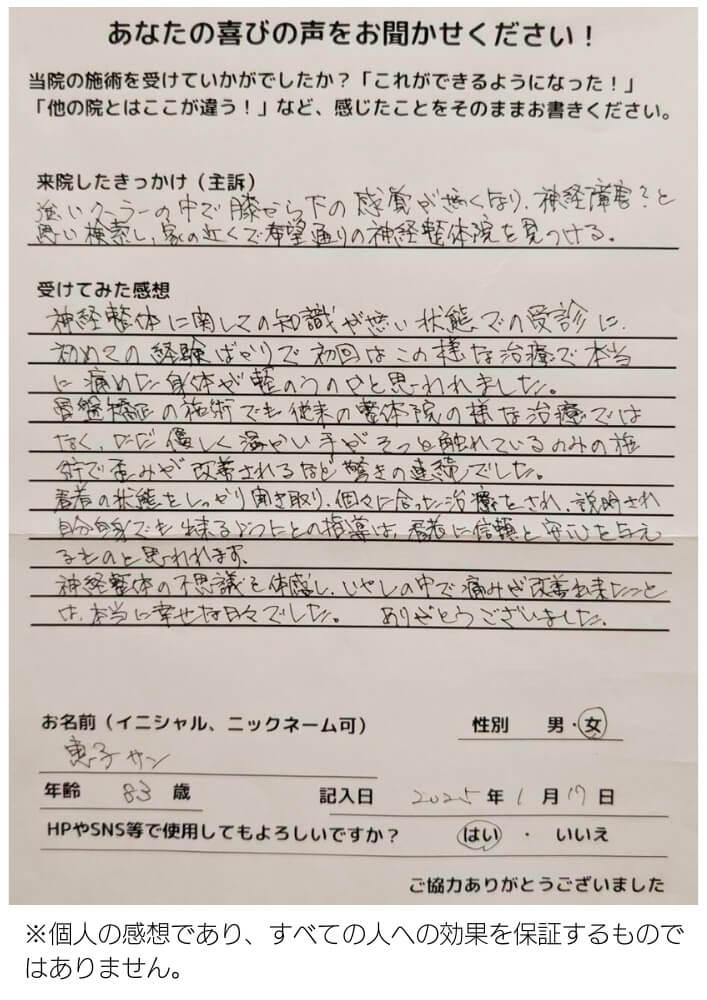 あなたの喜びの声をお聞かせください！
当院の施術を受けていかがでしたか？「これができるようになった！」
「他の院とはここが違う！」など、感じたことをそのままお書きください。
来院したきっかけ（主訴）
強いクーラーの中で膝から下の感覚が無くなり、神経障害？と
思い検索し、家の近くで希望通りの神経整体院を見つける。
受けてみた感想
神経整体に関しての知識が無い状態での受診に、
初めての経験ばかりで初回はこの様な治療で本当
に痛めた身体が軽のうのかと思われました。
骨盤矯正の施術でも従来の整体院の様な治療では
なく、ただ優しく温かい手がそっと触れているのみの施
術で歪みが改善されるなど驚きの連続でした。
患者の状態をしっかり聞き取り、個々に合った治療をされ、説明され
自分自身でも出来るようにとの指導は、患者に信頼と安心を与え
るものと思われます。
神経整体の不思議を体感し、いやしの中で痛みが改善出来たこと
は、本当に幸せな日々でした。 ありがとうございました。
お名前（イニシャル、ニックネーム可） 性別 男・女
恵子サン
年齢 83 歳 記入日 2025 年 1 月 17 日
HPやSNS等で使用してもよろしいですか？ はい ・ いいえ
ご協力ありがとうございました
※個人の感想であり、すべての人への効果を保証するもので
はありません。